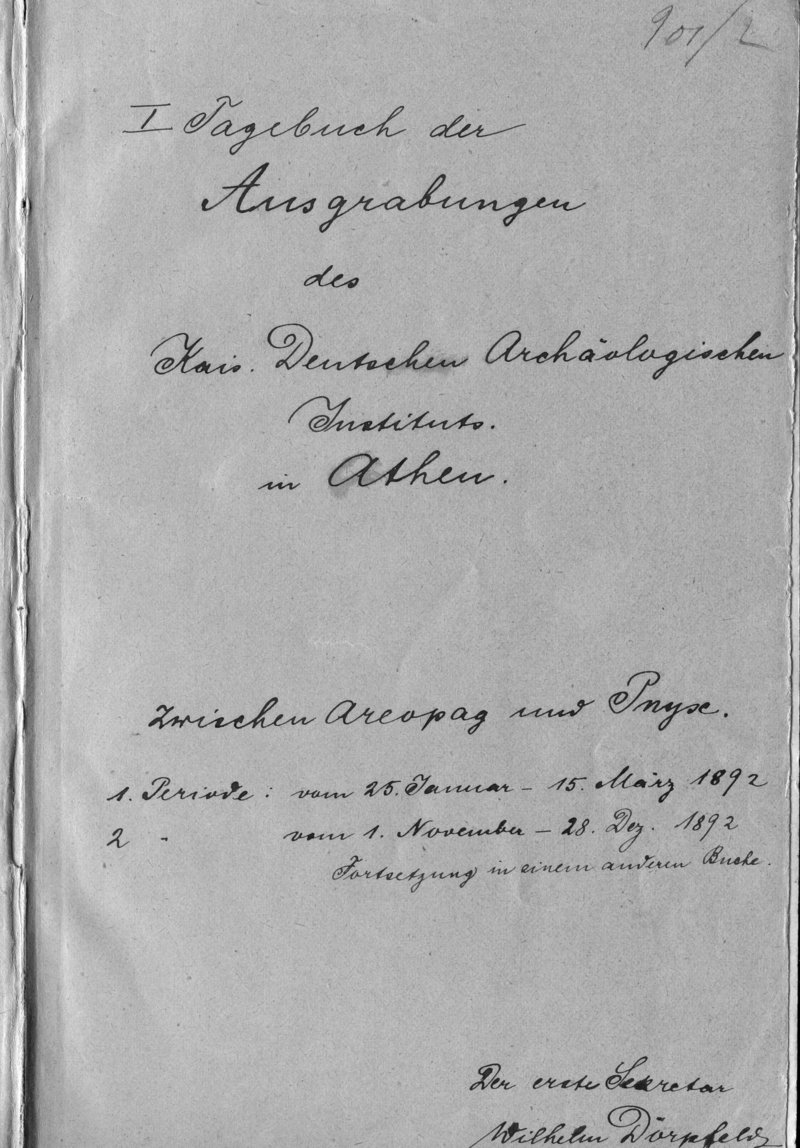 901/2
I Tagebuch der
Ausgrabungen
des
Kais. Deutschen Archäologischen
Instituts.
in Athen.
zwischen Areopag und Pnyx.
1. Periode: vom 25. Januar - 15. März 1892
2 - vom 1. November - 28. Dez. 1892
Fortsetzung in einem anderen Buche.
Der erste Sekretar
Wilhelm Dörpfeld